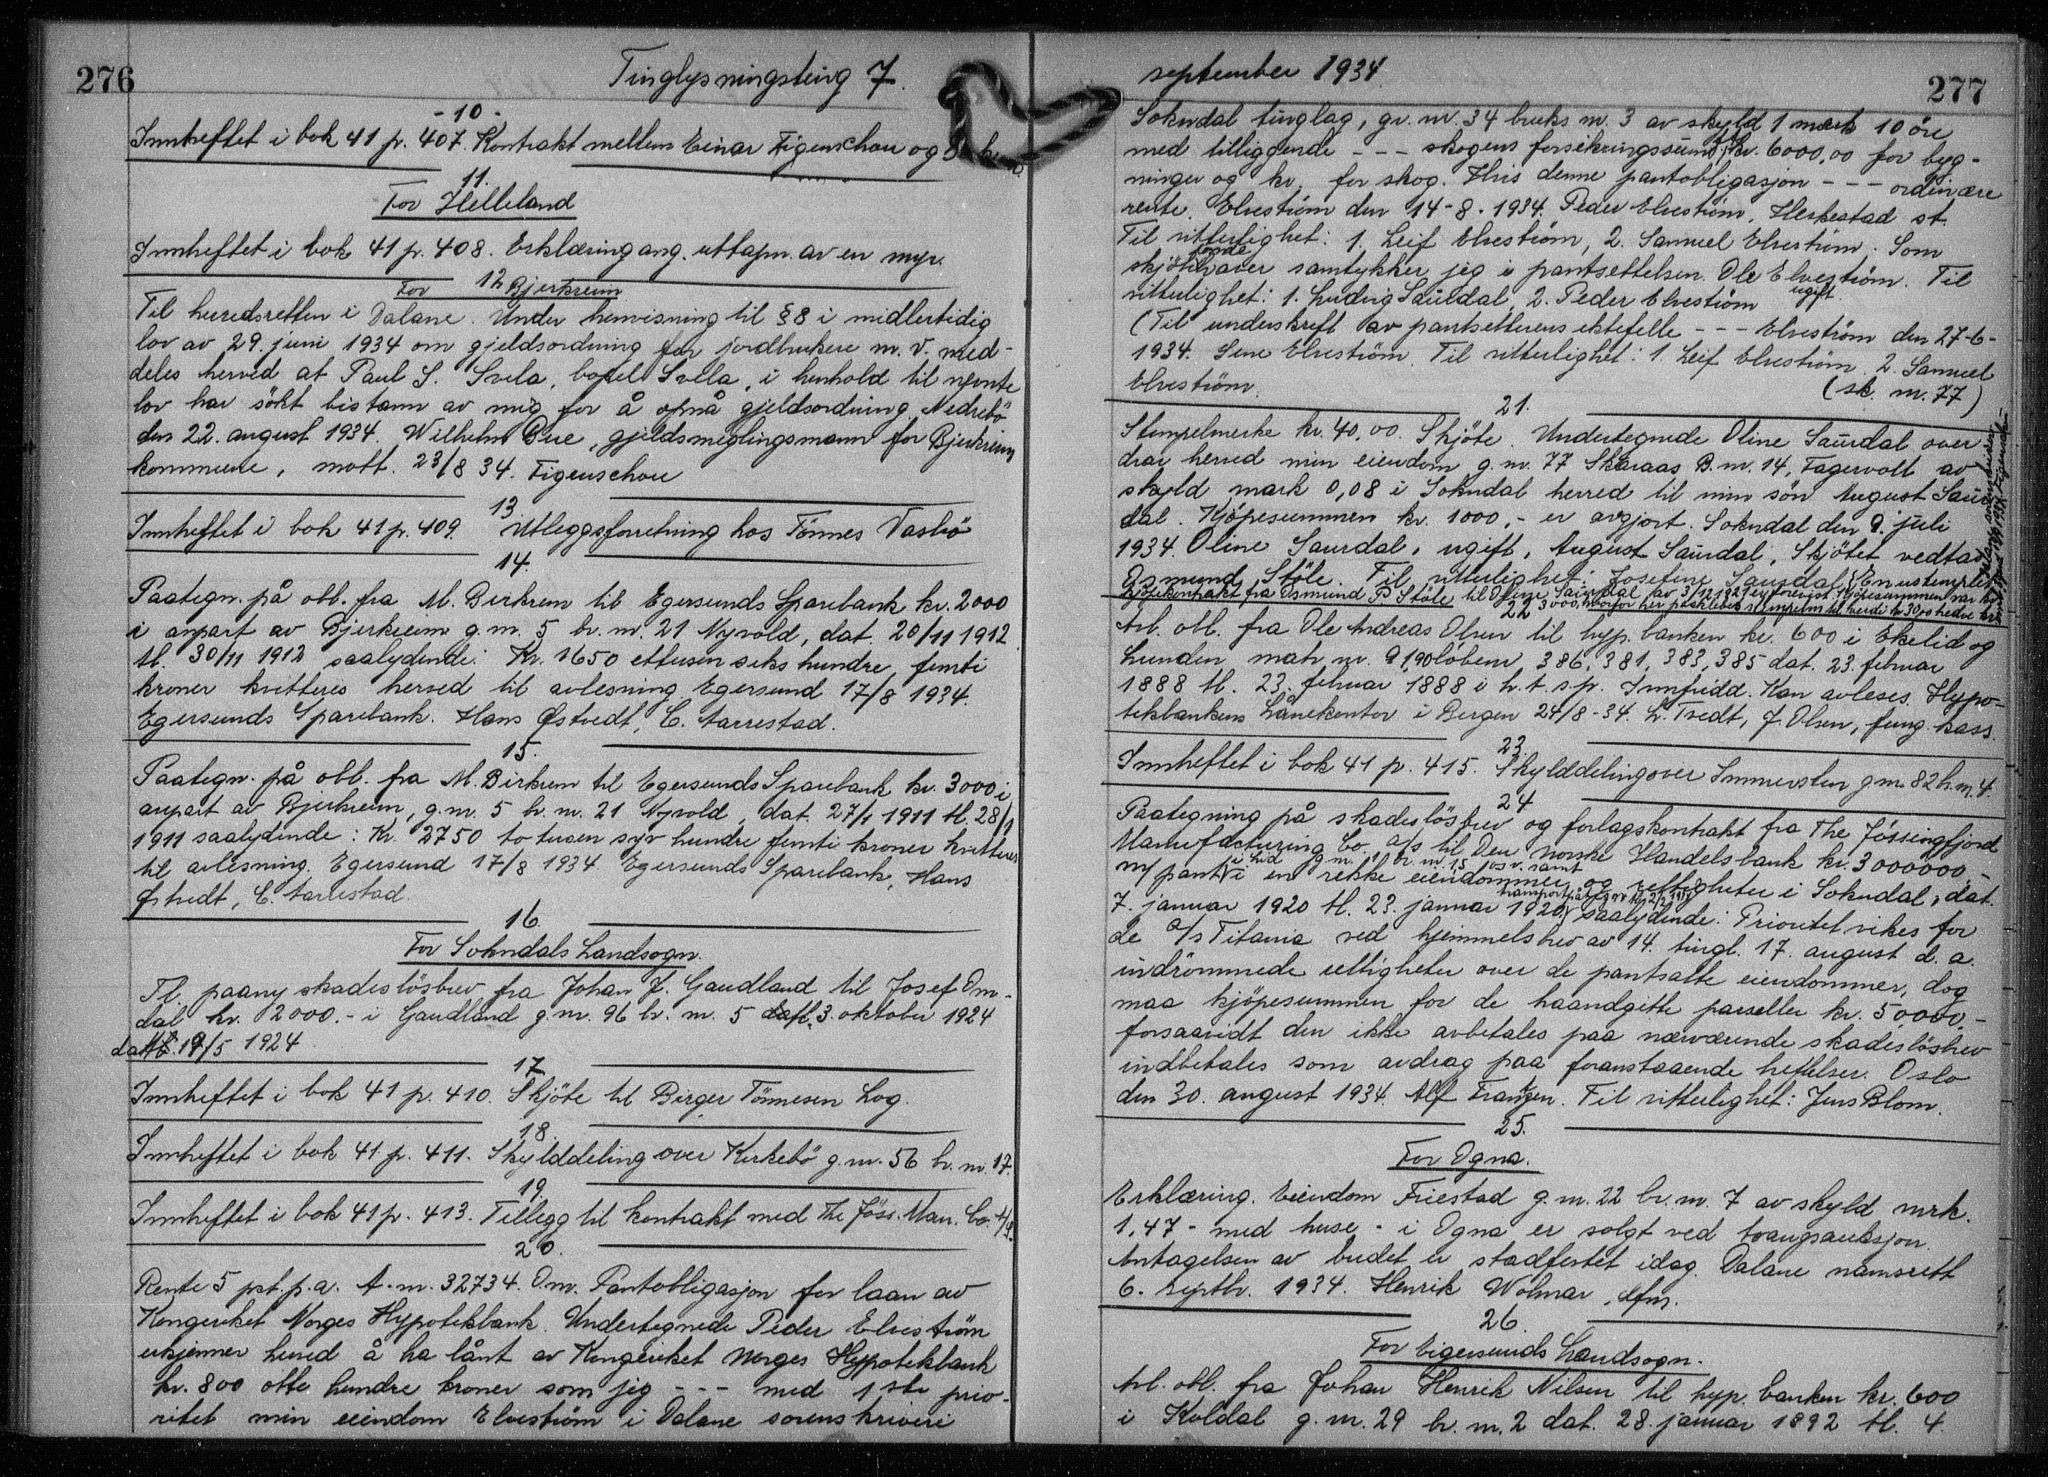 276
Tinglysningsting 7.
-10-
Innheftet i bok 41 p. 407. Kontrakt mellem Einar Figenschou og
11.
For Helleland
Innheftet i bok 41 p. 408. Erklæring ang. uttapn. av en myr.
12
For Bjerkreim
Til herredsretten i Dalane. Under henvisning til § 8 i midlertidig
lov av 29. juni 1934 om gjeldsordning for jordbrukere m. v. med-
deles herved at Paul S. Svela, bopel Svela, i henhold til nevnte
lov har søkt bistann av mig for å opnå gjeldsordning. Nedrebö
den 22. august 1934. Wilhelm Bue, gjeldsmeglingsmann for Bjerkreim
kommune, mott. 23/8 34. Figenschou
13.
Innheftet i bok 41 p. 409. Utleggsforretning hos Tönnes Vasbö
14.
Paategn. på obl. fra M. Birkrem til Egersunds Sparebank kr. 2000
i anpart av Bjerkreim g.nr. 5 br. nr. 21 Nyvold, dat. 20/11 1912
tl. 30/11 1912 saalydende: Kr. 1650 ettusen seks hundre femti
kroner kvitteres herved til avlesning. Egersund 17/8 1934.
Egersunds Sparebank. Hans Østvedt, C. Aarrestad.
15.
Paategn. på obl. fra M. Birkrem til Egersunds Sparebank kr. 3000 i
anpart av Bjerkreim, g.nr. 5 br. nr. 21 Nyvold, dat. 27/1 1911 tl. 28/1
1911 saalydende: Kr. 2750 to tusen syv hundre femti kroner kvitteres
til avlesning. Egersund 17/8 1934. Egersunds Sparebank, Hans
Østvedt, C. Aarrestad.
16.
For Sokndals Landsogn.
Tl. paany skadeslösbrev fra Johan J. Gaudland til Josef Om-
dal kr. 2000.- i Gaudland g.nr. 96 br. nr. 5 tl. 3. oktober 1924
dat. 19/5 1924
17.
Innheftet i bok 41 p. 410. Skjöte til Birger Tönnesen Log.
18.
Innheftet i bok 41 p. 411. Skylddeling over Kirkebö g.nr. 56 br. nr. 17.
19.
Innheftet i bok 41 p. 413. Tillegg til kontrakt med The Jöss. Man. Co. A/S.
20.
Rente 5 pct. p.a. A.nr. 32734. Om. Pantobligasjon for laan av
Kongeriket Norges Hypotekbank. Undertegnede Peder Elveström
erkjenner herved å ha lånt av Kongeriket Norges Hypotekbank
kr. 800 otte hundre kroner som jeg --- med 1ste prio-
ritet min eiendom Elveström i Dalane sorenskriveri
september 1934.
277
Sokndal tinglag, gr. nr. 34 bruks nr. 3 av skyld 1 mark 10 öre
med tilliggende --- skogens forsikringssum kr. 6000,00 for byg-
ninger og kr. for skog. Hvis denne pantobligasjon --- ordinære
rente. Elveström den 14-8-1934. Peder Elveström. Herkestad st.
Til vitterlighet: 1. Leif Elveström, 2. Samuel Elveström. Som
skjötehaver samtykker jeg i pantsettelsen. Ole Elveström. Til
vitterlighet: 1. Ludvig Saurdal, 2. Peder Elveström ugift.
(Til underskrift av pantsetterens ektefelle --- Elveström den 27-6-
1934. Sene Elveström. Til vitterlighet: 1. Leif Elveström. 2. Samuel
Elveström. (sk. nr. 77)
21.
Stempelmerke kr. 40,00. Skjöte. Undertegnede Oline Saurdal over
drar herved min eiendom g.nr. 77 Skaraas B.nr. 14, Fagervoll av
skyld mark 0,08 i Sokndal herred til min sön August Saur
dal. Kjöpesummen kr. 1000,- er avgjort. Sokndal den 9. juli
1934. Oline Saurdal, ugift, August Saurdal. Skjötet vedtas
Osmund Stöle. Til vitterlighet: Josefine Saurdal. En ustemplet
kjöpekontrakt fra Osmund P Stöle til Oline Saurdal av 3/12 1921 er forevist. Kjöpesummen var kr.
3000, hvorfor her paaklebes
22.
Avl. obl. fra Ole Andreas Olsen til hyp. banken kr. 600 i Ekelid og
Lunden matr. nr. löbenr. 386, 381, 383, 385 dat. 23. februar
1888 tl. 23. februar 1888 i h.t.s.p. Innfridd. Kan avleses. Hypo-
tekbankens Lånekontor i Bergen 24/8-34. L. Tvedt, J. Olsen, fung. kass.
23.
Innheftet i bok 41 p. 415. Skylddeling over Immersten g.nr. 82 br. nr. 4.
24.
Paategning på skadeslösbrev og forlagskontrakt fra The Jössingfjord
Manufacturing Co. A/S til Den norske Handelsbank kr. 3000000,-
m/ pant i en rekke eiendommer og rettigheter i Sokndal, dat.
7. januar 1920 tl. 23. januar 1920, saalydende: Prioritet vikes for
de A/S Titania ved hjemmelsbrev av 14. tingl. 17. august d.a.
indrömmede rettigheter over de pantsatte eiendommer, dog
maa kjöpesummen for de haandgitte parseller kr. 50000,-
forsaavidt den ikke avbetales paa nærværende skadeslösbrev
indbetales som avdrag paa foranstaaende heftelser. Oslo
den 30. august 1934. Alf Frantzen. Til vitterlighet: Jens Blom.
25.
For Ogna.
Erklæring. Eiendom Friestad g.nr. 22 br. nr. 7 av skyld mrk.
1,47 - med huse - i Ogna er solgt ved tvangsauksjon.
Antagelsen av budet er stadfestet idag. Dalane namsrett
6. septbr. 1934. Henrik Wolmar, dfm.
26.
For Eigersunds Landsogn.
Avl. obl. fra Johan Henrik Nilsen til hyp. banken kr. 600
i Koldal g.nr. 29 br. nr. 2 dat. 28. januar 1892 tl. 4.